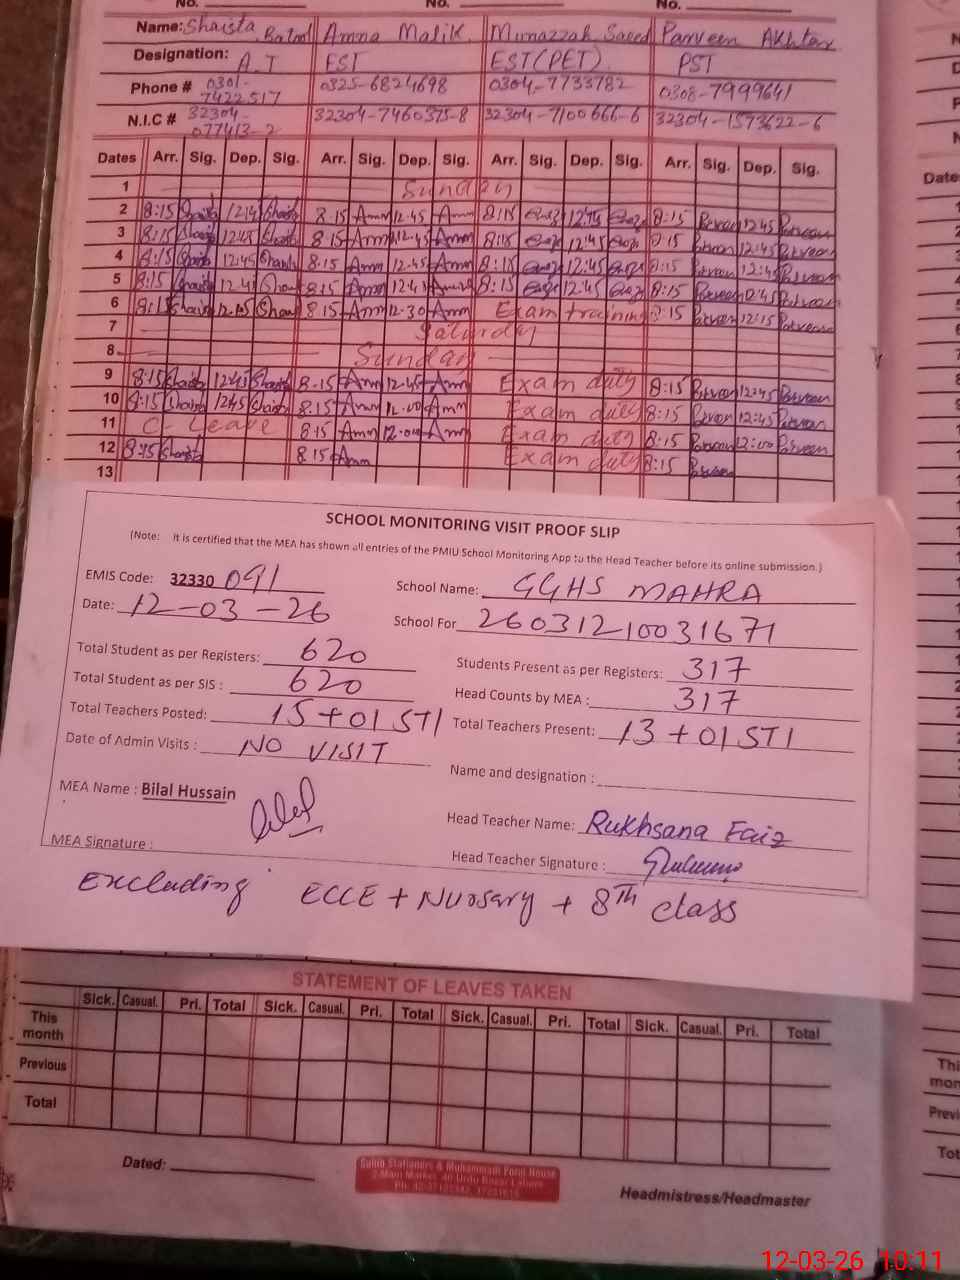 No. No. No.
Name: Shaista Batool Amna Malik Munazzah Saeed Parveen Akhtar
Designation: A.T EST EST(PET) PST
Phone # 0301-7422517 0325-6824698 0304-7733782 0308-7999641
N.I.C # 32304-077413-2 32304-7460375-8 32304-7100666-6 32304-1573622-6
Dates Arr. Sig. Dep. Sig. Arr. Sig. Dep. Sig. Arr. Sig. Dep. Sig. Arr. Sig. Dep. Sig.
1 Sunday
2 8:15 Shaista 8.15 Amn 12.45 Amn 8:15 12:45 8:15 12:45 Parveen
3 8:15 Shaista 12:45 8.15 Amn 12.45 Amn 8:15 12:45 8:15 12:45 Parveen
4 8:15 12:45 8.15 Amn 12.45 Amn 8:15 12:45 8:15 12:45 Parveen
5 8:15 8.15 Amn 8:15 12:45 8:15 Parveen
6 8:15 8.15 Amn 12.30 Amn Exam training 8:15 12:15 Parveen
7 Saturday
8 Sunday
9 8:15 Shaista 8.15 Amn 12.45 Amn Exam duty 8:15 12:45 Parveen
10 8:15 1245 8.15 Amn 12.00 Amn Exam duty 8:15 12:45 Parveen
11 C-Leave 8.15 Amn 12.00 Amn Exam duty 8:15 12:00 Parveen
12 8:15 Shaista 8.15 Amn Exam duty 8:15
13
SCHOOL MONITORING VISIT PROOF SLIP
(Note: It is certified that the MEA has shown all entries of the PMIU School Monitoring App to the Head Teacher before its online submission.)
EMIS Code: 32330 091 School Name: GGHS MAHRA
Date: 12-03-26 School For 26031210031671
Total Student as per Registers: 620 Students Present as per Registers: 317
Total Student as per SIS : 620 Head Counts by MEA : 317
Total Teachers Posted: 15+01 STI Total Teachers Present: 13+01 STI
Date of Admin Visits : NO VISIT Name and designation :
MEA Name : Bilal Hussain Head Teacher Name: Rukhsana Faiz
MEA Signature : Head Teacher Signature :
Excluding ECCE + Nursary + 8th class
STATEMENT OF LEAVES TAKEN
Sick. Casual. Pri. Total Sick. Casual. Pri. Total Sick. Casual. Pri. Total Sick. Casual. Pri. Total
This month
Previous
Total
Dated:
Headmistress/Headmaster
12-03-26 10:11